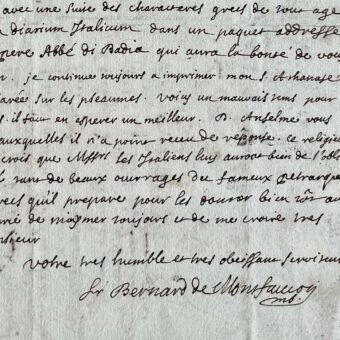 avec une suite des characteres grecs de tout age
n diarium Italicum dans un paquet addresse
pere Abbé di Badia qui aura la bonté de vou
r. je continue toujours à imprimer mon S. Athanase
sur les pseaumes. Voicy un mauvais tems pour
s. il faut en esperer un meilleur. D. Anselme vous
auxquelles il n'a point receu de réponse. ce religieu
crois que Messrs les Italiens luy auront bien de l'obl
de beaux ouvrages du fameux petrarque
grecs qu'il prepare pour les donner bien tôt au
de m'aymer toujours et de me croire tres
sieur
Votre tres humble et tres obeissant serviteur
fr Bernard de Montfaucon
mb.